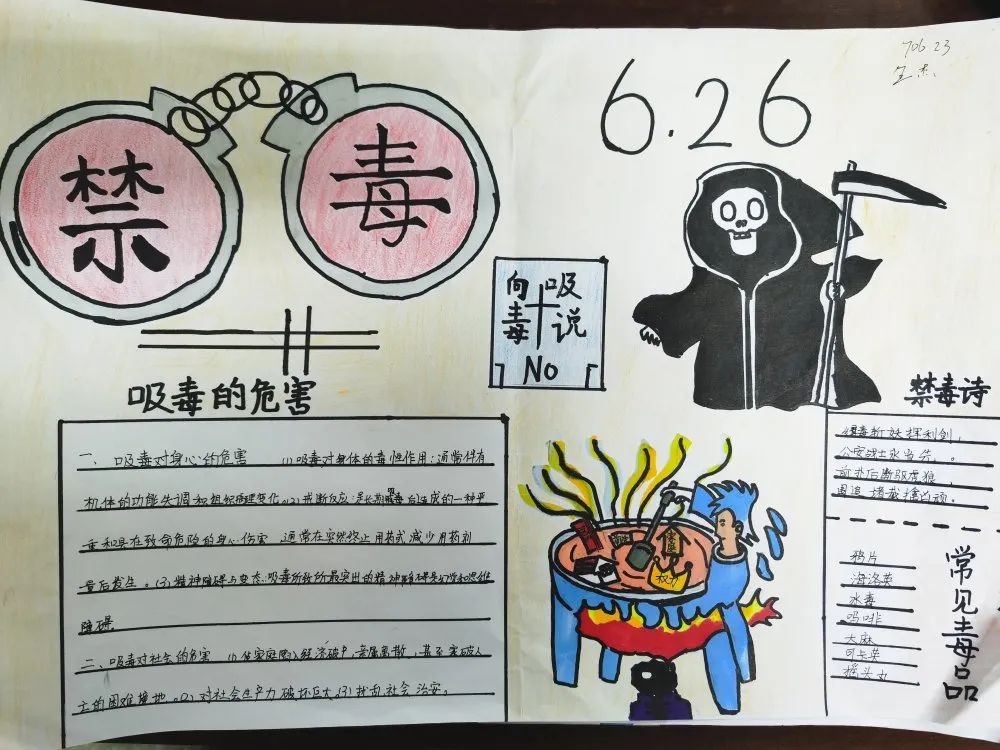 禁毒
6.26
706 23
向吸
毒说
No
吸毒的危害
一、吸毒对身心的危害 (1)吸毒对身体的毒性作用：通常伴有
机体的功能失调和组织病理变化。(2)戒断反应：是长期吸毒后造成的一种严
重和具在致命危险的身心伤害 通常在突然终止用药或减少用药剂
量后发生。(3)精神障碍与变态：吸毒所致所最突出的精神障碍是幻觉和思维
障碍
二、吸毒对社会的危害 (1)使家庭陷入经济破产，亲属离散，甚至家破人
亡的困难境地。(2)对社会生产力破坏巨大。(3)扰乱社会治安。
禁毒诗
缉毒斩妖挥利剑，
公安战士永当先。
前步后断驱虎狼
围追堵截擒凶顽。
常见毒品
鸦片
海洛英
冰毒
吗啡
大麻
可卡英
摇头丸
家庭
权力